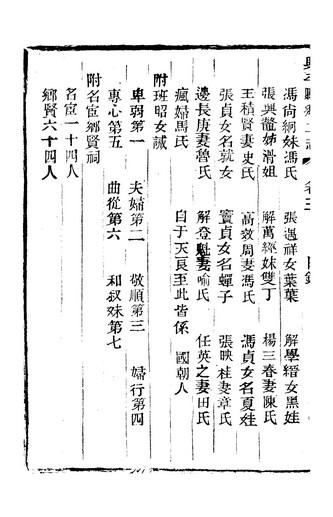 馮尚絅妹馮氏 張遇祥女葉葉 解學縉女黑娃
張興鼇姊滑姐 解萬經妹雙丁 楊三春妻陳氏
王積賢妻史氏 高效周妻馮氏 馮貞女名夏娃
張貞女名就女 竇貞女名蟬子 張映桂妻章氏
邊長庚妻魯氏 解登魁妻喻氏 任英之妻田氏
瘋婦馬氏 自于天民至此皆係 國朝人
附班昭女誡
卑弱第一 夫婦第二 敬順第三 婦行第四
專心第五 曲從第六 和叔妹第七
附名宦鄉賢祠
名宦一十四人
鄉賢六十四人